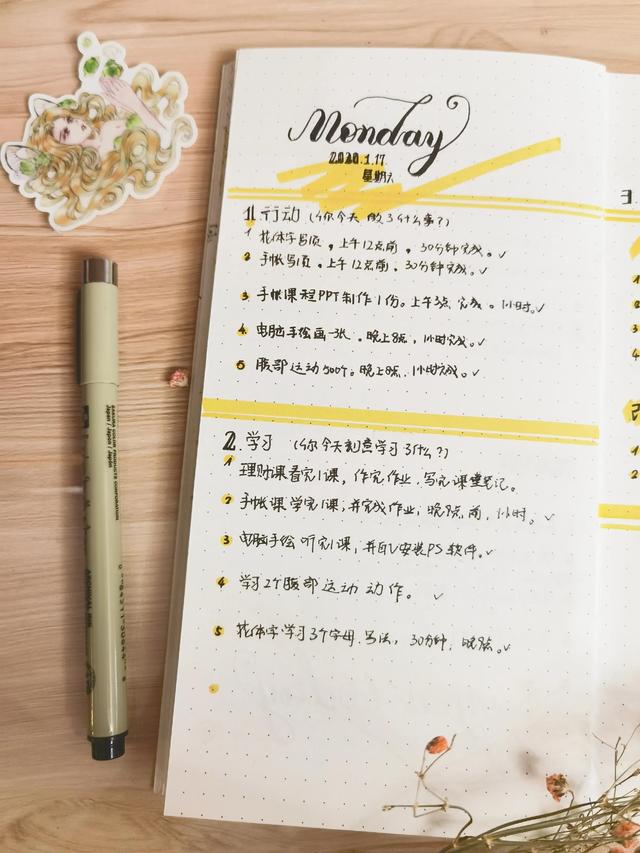 Monday
2020.1.17
星期六
1.行动（你今天做了什么事？）
1 花体字写1页，上午12点前，30分钟完成。✓
2 手帐写1页，上午12点前，30分钟完成。✓
3 手帐课程PPT制作1份。上午3点完成。1小时。✓
4. 电脑手绘画一张。晚上8点，1小时完成。✓
5 腹部运动500个。晚上8点.1小时完成。✓
2.学习（你今天刻意学习了什么？）
1 理财课看完1课，作完作业.写完课堂笔记。
2 手帐课学完1课;并完成作业;晚8点前，1小时。✓
3 电脑手绘听完1课，并且安装PS软件。✓
4 学习2个腹部运动动作。✓
5 花体字学习3个字母.写法，30分钟，晚8点。✓
3.
1
2
3
4
1
2
SAKURA COLOR PRODUCTS CORPORATION
Japan / Japon / Japón
PIGMA
ARCHIVAL INK